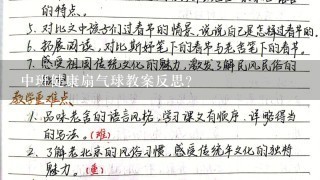 的特点。
5. 对比文中孩子们过春节的情景,说说自己是怎样过春节的。
6. 拓展阅读,对比斯妤笔下的春节与老舍笔下的春节。
7. 感受祖国传统文化的魅力,激发了解民风民俗的
中班健康扇气球教案反思?
教学重难点
1. 品味老舍的语言风格,学习课文有顺序、详略得当
的写法。(难)
2. 了解老北京的风俗习惯,感受传统年文化的独特
魅力。(重)